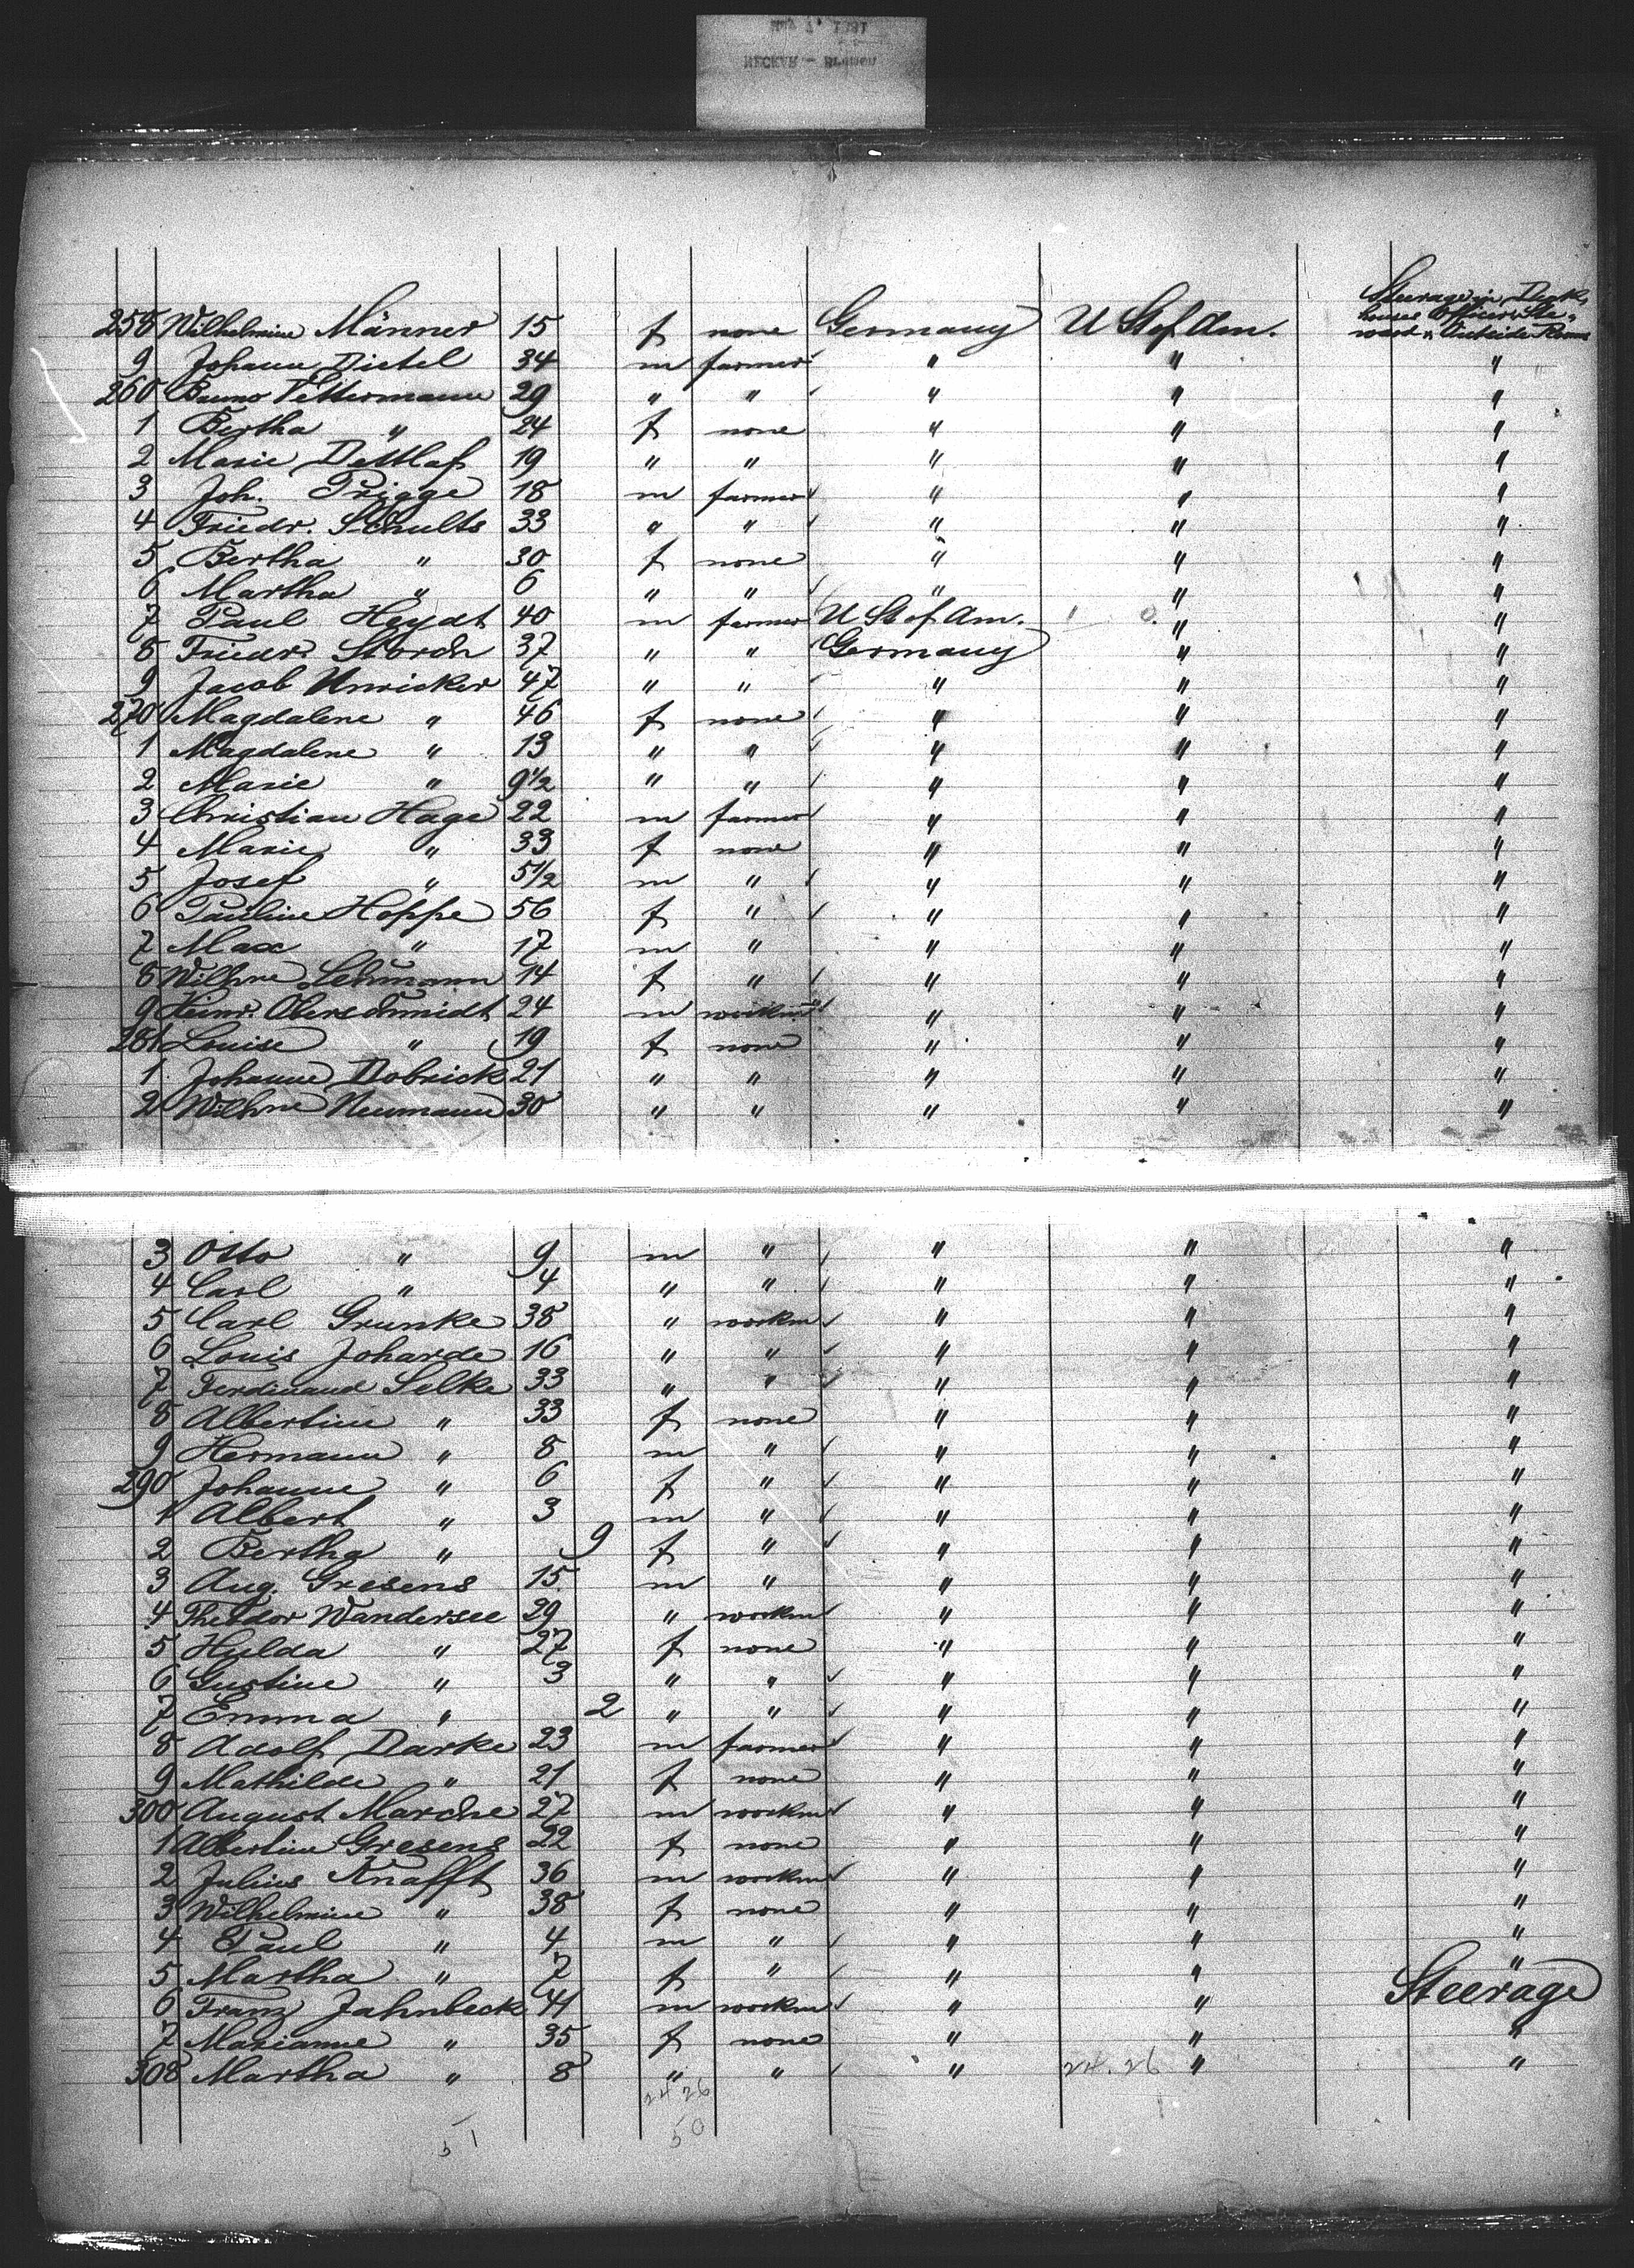 May 7, 1881
NECKAR - Bremen
258 Wilhelmine Männer 15 f none Germany U St of Am. Steerage in Deck houses Officers & Steward's Outside Rooms
9 Johann Dietel 34 m farmer " " "
260 Bruno Fettermann 29 " " " " "
1 Bertha " 24 f none " " "
2 Marie Dettlaf 19 " " " " "
3 Joh. Prigge 18 m farmer " " "
4 Friedr. Schults 33 " " " " "
5 Bertha " 30 f none " " "
6 Martha " 6 " " " " "
7 Paul Heydt 40 m farmer U St of Am. " "
8 Friedr. Storch 37 " " Germany " "
9 Jacob Unricker 47 " " " " "
270 Magdalene " 46 f none " " "
1 Magdalene " 13 " " " " "
2 Marie " 9 1/2 " " " " "
3 Christian Hage 22 m farmer " " "
4 Marie " 33 f none " " "
5 Josef " 5 1/2 m " " " "
6 Pauline Hoppe 56 f " " " "
7 Max " 17 m " " " "
8 Wilhne Lehmann 14 f " " " "
9 Heinr. Oberschmidt 24 m workm " " "
281 Louise " 19 f none " " "
1 Johanne Dobrick 21 " " " " "
2 Wilhne Neumann 30 " " " " "
3 Otto " 9 m " " " "
4 Carl " 4 " " " " "
5 Carl Grunke 38 " workm " " "
6 Louis Joharde 16 " " " " "
7 Ferdinand Selke 33 " " " " "
8 Albertine " 33 f none " " "
9 Hermann " 8 m " " " "
290 Johanne " 6 f " " " "
1 Albert " 3 m " " " "
2 Bertha " 9 f " " " "
3 Aug. Gresens 15 m " " " "
4 Theodor Wandersee 29 " workm " " "
5 Hulda " 27 f none " " "
6 Gustine " 3 " " " " "
7 Emma " 2 " " " " "
8 Adolf Darke 23 m farmer " " "
9 Mathilde " 21 f none " " "
300 August Marche 27 m workm " " "
1 Albertine Gresens 22 f none " " "
2 Julius Knafft 36 m workm " " "
3 Wilhelmine " 38 f none " " "
4 Paul " 4 m " " " "
5 Martha " 7 f " " " "
6 Franz Jahnbeck 41 m workm " " Steerage
7 Marianne " 35 f none " " "
308 Martha " 8 " " " 24.26 " "
24 26
51 50